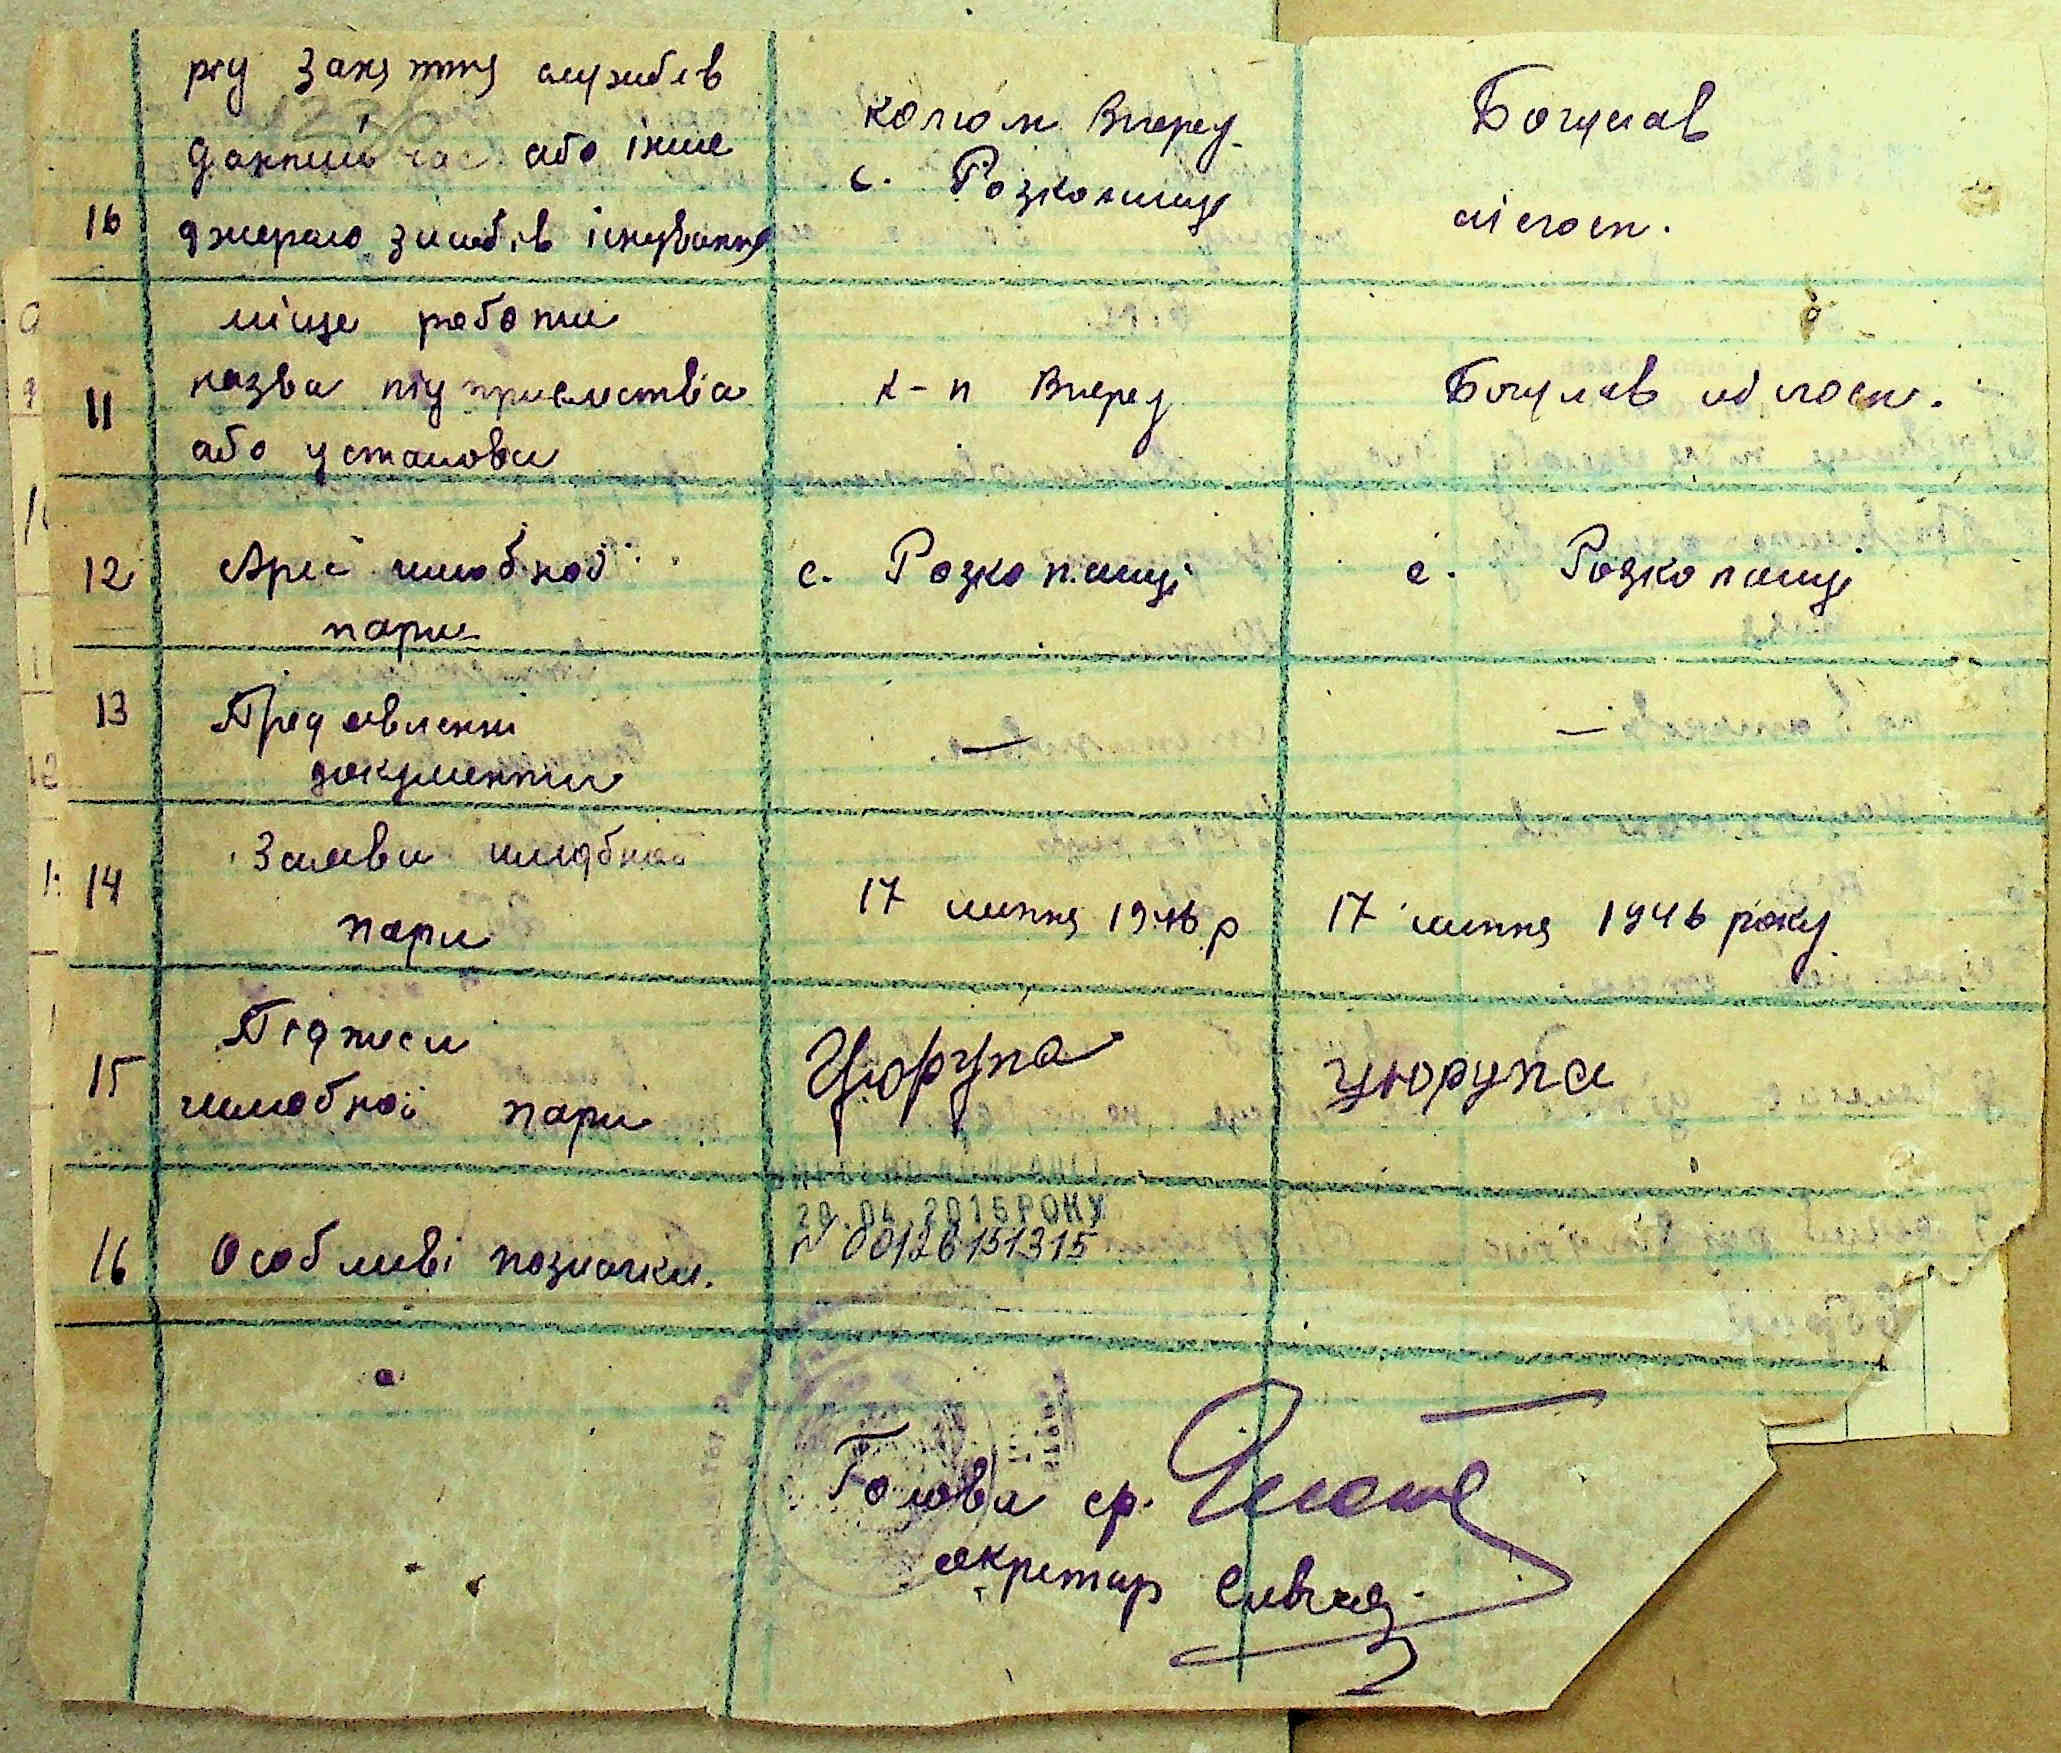 рід заняття службов
даний час або інше
10 джерало засобів існування
колгоп Вперед
с. Розкопинці
Богуслав
лісгосп.
місце роботи
11 назва підприємства
або установи
к-п Вперед
Богуслав лісгосп.
12 Адреса шлюбної
пари
с. Розкопинці
с. Розкопинці
13 Предявленні
документи
—
—
14 Заява шлюбної
пари
17 липня 1946 р
17 липня 1946 року
15 Підписи
шлюбної пари
Цюрупа
Цюрупа
16 Особливі позначки.
29.04.2015 РОКУ
N 00126151315
Голова ср.
секретар